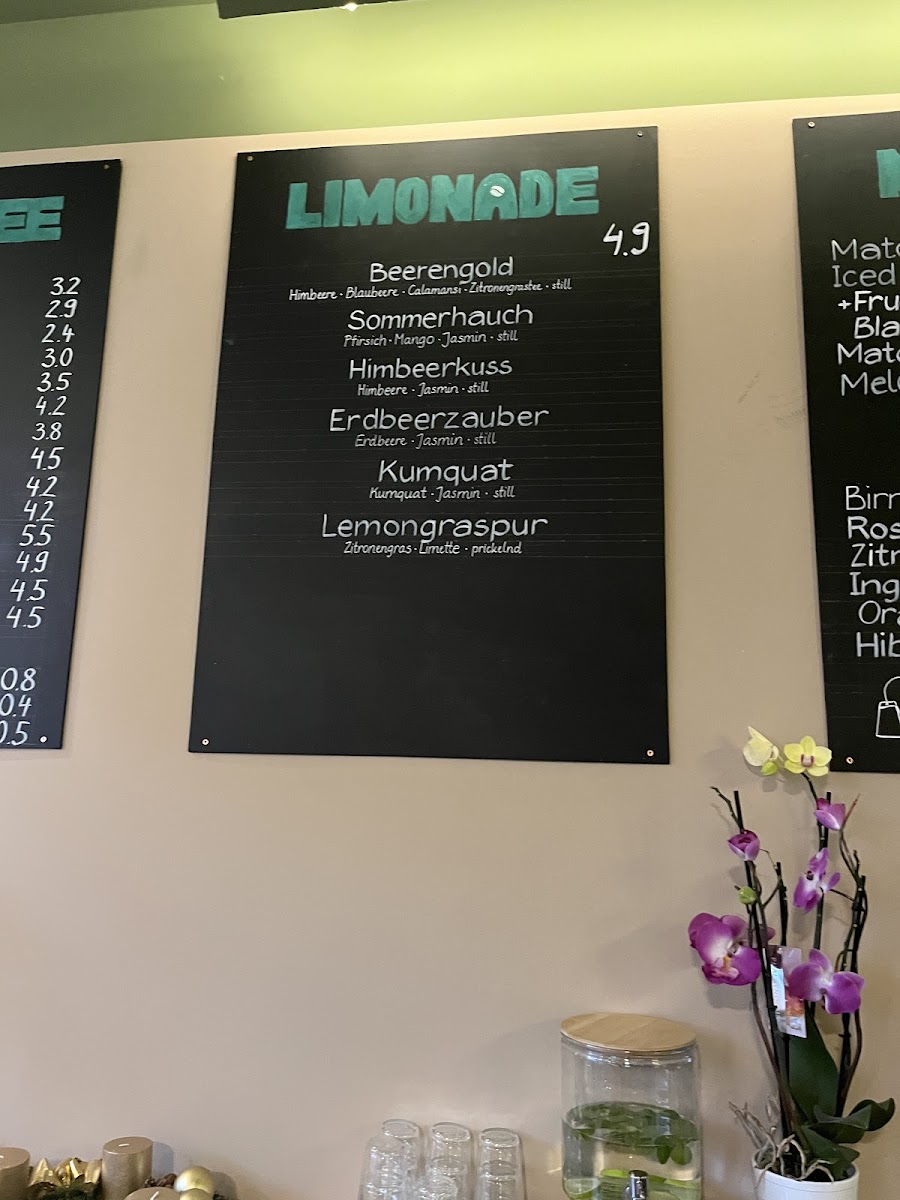 3.2
2.9
2.4
3.0
3.5
4.2
3.8
4.5
4.2
4.2
5.5
4.9
4.5
4.5
0.8
0.4
0.5
LIMONADE
4.9
Beerengold
Himbeere · Blaubeere · Calamansi · Zitronengrastee · still
Sommerhauch
Pfirsich · Mango · Jasmin · still
Himbeerkuss
Himbeere · Jasmin · still
Erdbeerzauber
Erdbeere · Jasmin · still
Kumquat
Kumquat · Jasmin · still
Lemongraspur
Zitronengras · Limette · prickelnd
Iced